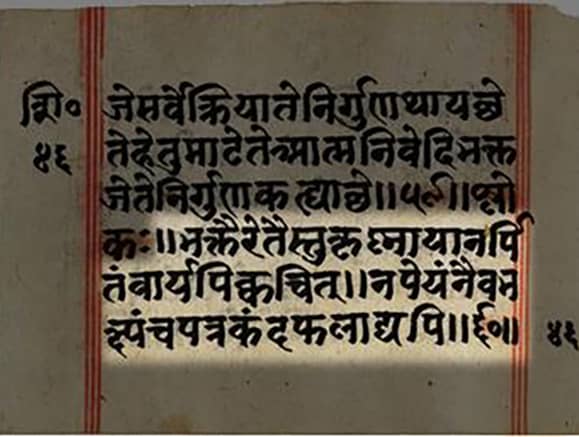 शि० जे सर्वे क्रिया ते निर्गुण थाय छे
४६ ते हेतु माटे ते आत्मनिवेदि भक्त
जे ते निर्गुण कह्या छे॥५९॥श्लो
कः॥भक्तैरेतैस्तु कृष्णायानर्पि
तं वार्यपि क्वचित्॥न पेयं नैव भ
क्ष्यं च पत्रकंदफलाद्यपि॥६०॥ ४६